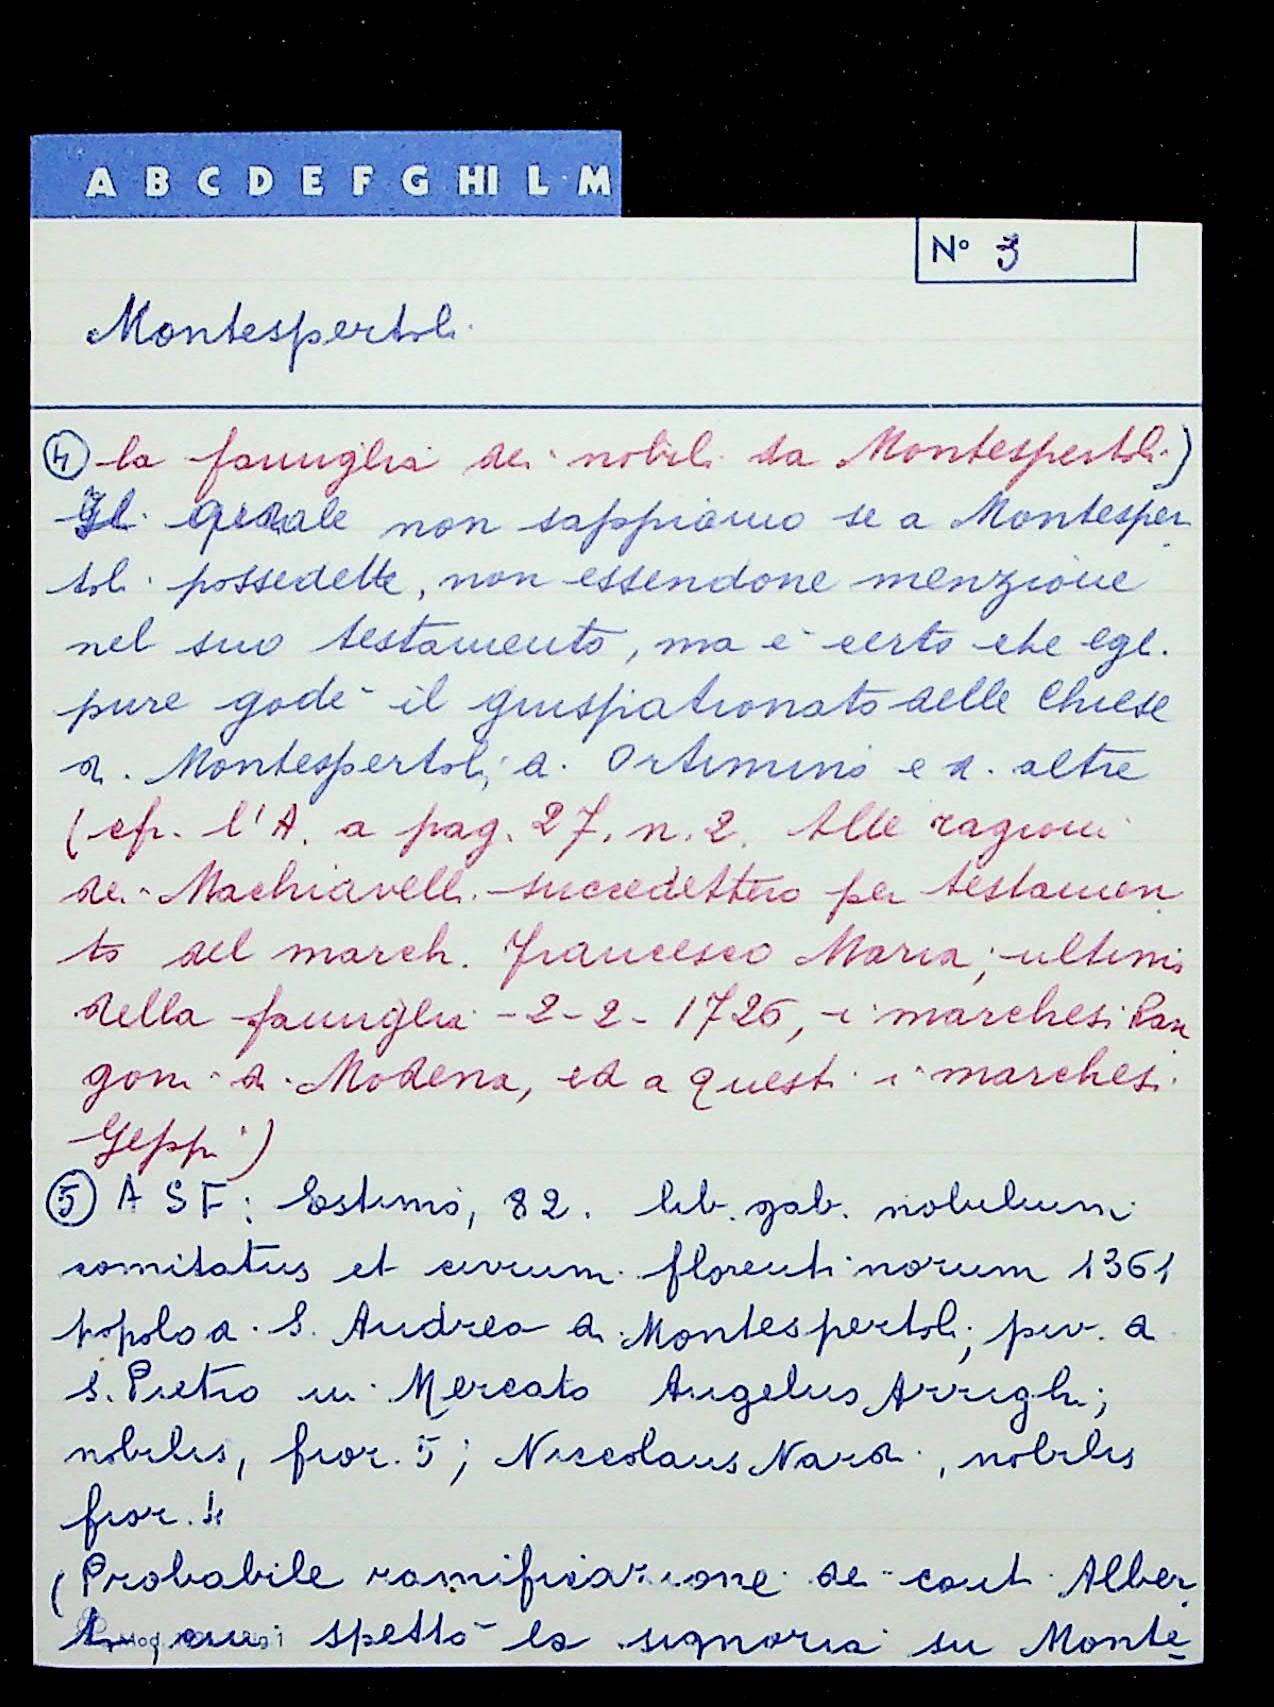 A B C D E F G HI L M
N° 3
Montespertoli
④ la famiglia dei nobili da Montespertoli)
Il quale non sappiamo se a Montesper
toli possedette, non essendone menzione
nel suo testamento, ma è certo che egli
pure godè il giuspatronato delle Chiese
di Montespertoli, di Ortimino e di altre
(cfr. l'A. a pag. 27, n. 2. Alle ragioni
dei Machiavelli succedettero per testamen
to del march. Francesco Maria, ultimo
della famiglia -2-2-1726, i marchesi Ran
goni di Modena, ed a questi i marchesi
Geppi)
⑤ A S F: Estimo, 82. lib. gab. nobilium
comitatus et civium florentinorum 1361
popolo di S. Andrea di Montespertoli, piv. di
S. Pietro in Mercato Angelus Arrighi;
nobilis, fior. 5; Niccolaus Nardi, nobilis
fior. 4
(Probabile ramificazione dei conti Alber
ti, cui spettò la signoria su Monte